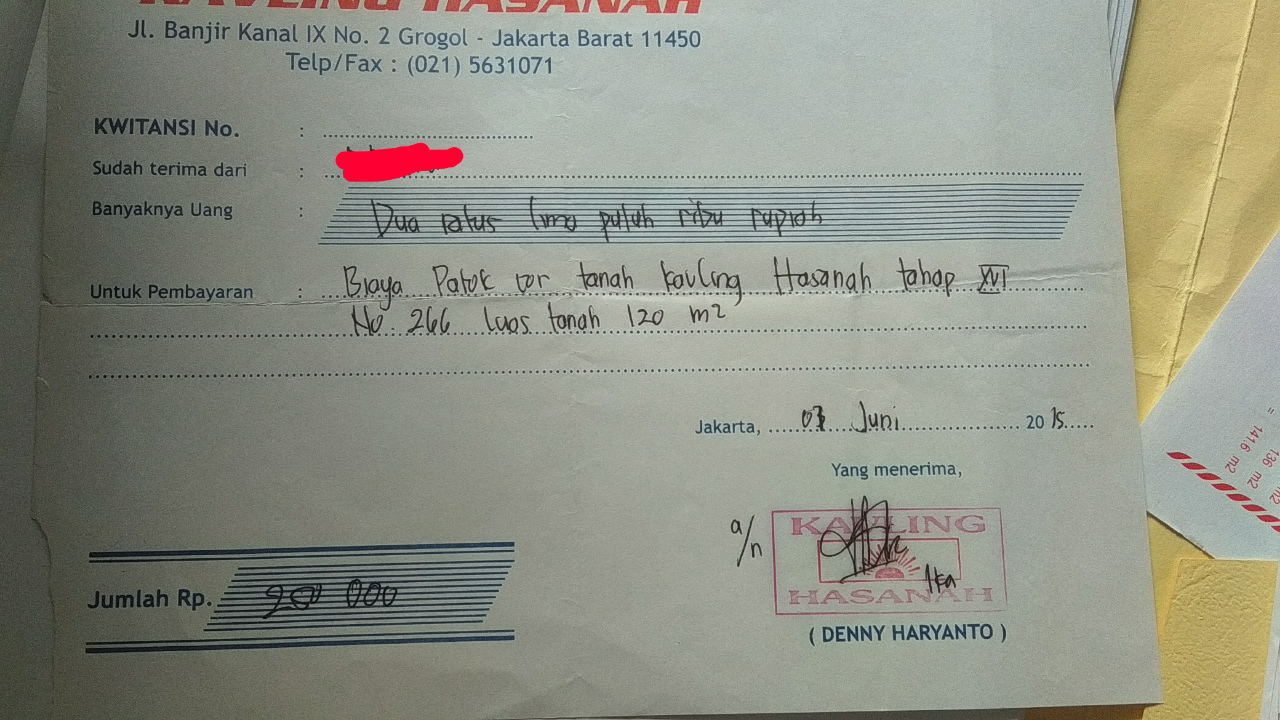 KAVLING HASANAH
Jl. Banjir Kanal IX No. 2 Grogol - Jakarta Barat 11450
Telp/Fax : (021) 5631071
KWITANSI No. :
Sudah terima dari :
Banyaknya Uang : Dua ratus lima puluh ribu rupiah
Untuk Pembayaran : Biaya Patok cor tanah kavling Hasanah tahap XVI
No. 266 luas tanah 120 m2
Jakarta, Juni 2015
Yang menerima,
a/n
KAVLING
Ika
HASANAH
Jumlah Rp. 250 000
( DENNY HARYANTO )
= 141.6 m2
136 m2
m2